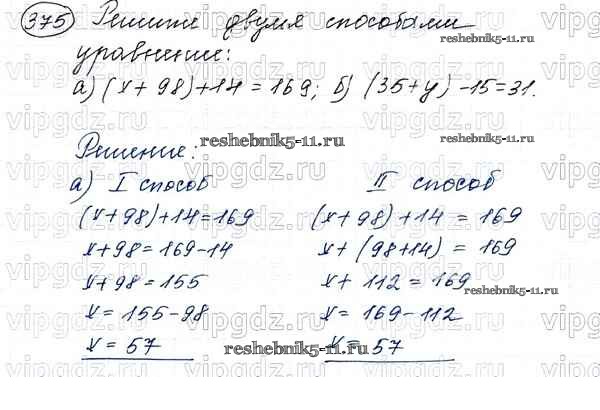 375 Решите двумя способами
reshebnik5-11.ru
уравнение:
а) (x + 98) + 14 = 169; б) (35 + y) - 15 = 31.
vipgdz.ru vipgdz.ru vipgdz.ru vipgdz.ru
Решение:
reshebnik5-11.ru
а) I способ
(x + 98) + 14 = 169
x + 98 = 169 - 14
x + 98 = 155
x = 155 - 98
x = 57
II способ
(x + 98) + 14 = 169
x + (98 + 14) = 169
x + 112 = 169
reshebnik5-11.ru
x = 169 - 112
x = 57
reshebnik5-11.ru